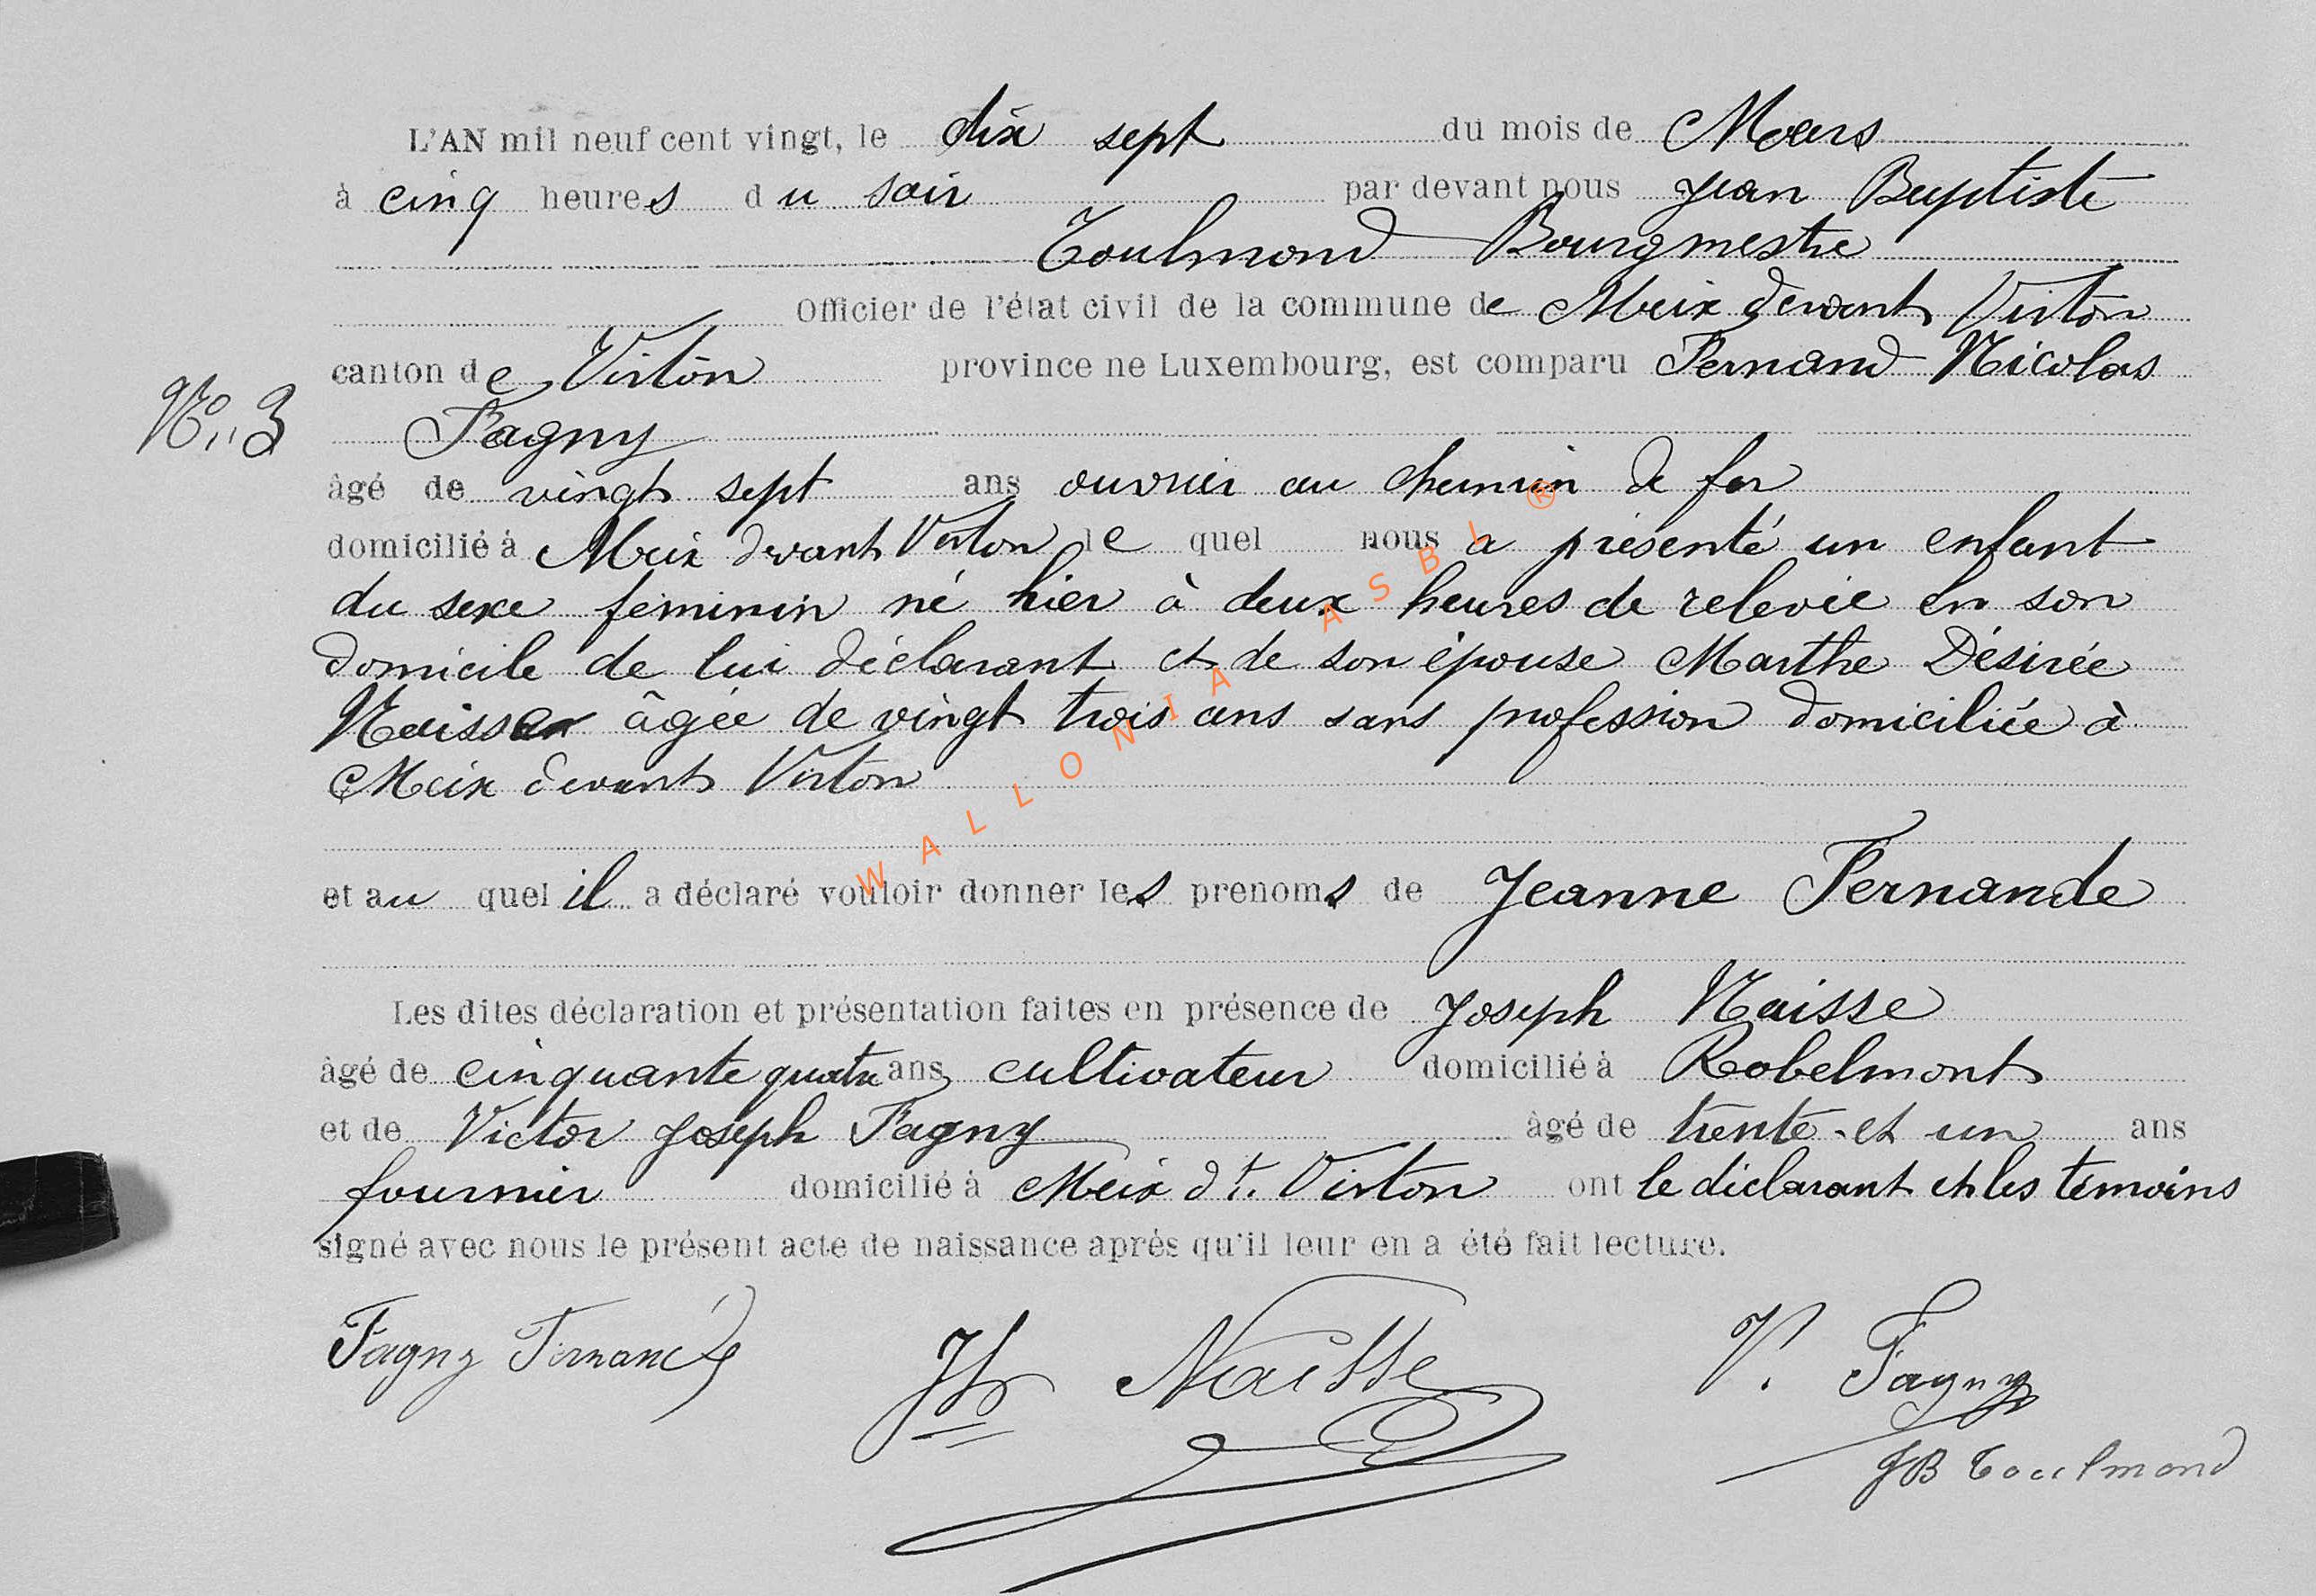 L'AN mil neuf cent vingt, le dix sept du mois de Mars
à cinq heures du soir par devant nous Jean Baptiste
Toulmond Bourgmestre
Officier de l'état civil de la commune de Meix devant Virton
canton de Virton province ne Luxembourg, est comparu Fernand Nicolas
N° 3 Fagny
âgé de vingt sept ans ouvrier au chemin de fer
domicilié à Meix devant Virton lequel nous a présenté un enfant
du sexe féminin né hier à deux heures de relevée en son
domicile de lui déclarant et de son épouse Marthe Désirée
Naisse âgée de vingt trois ans sans profession domiciliée à
Meix devant Virton
et au quel il a déclaré vouloir donner les prenoms de Jeanne Fernande
Les dites déclaration et présentation faites en présence de Joseph Naisse
âgé de cinquante quatre ans cultivateur domicilié à Robelmont
et de Victor Joseph Fagny âgé de trente et un ans
fournier domicilié à Meix dt. Virton ont le déclarant et les témoins
signé avec nous le présent acte de naissance après qu'il leur en a été fait lecture.
Fagny Fernand Jh Naisse V. Fagny
JB Toulmond
WALLONIA ASBL ®